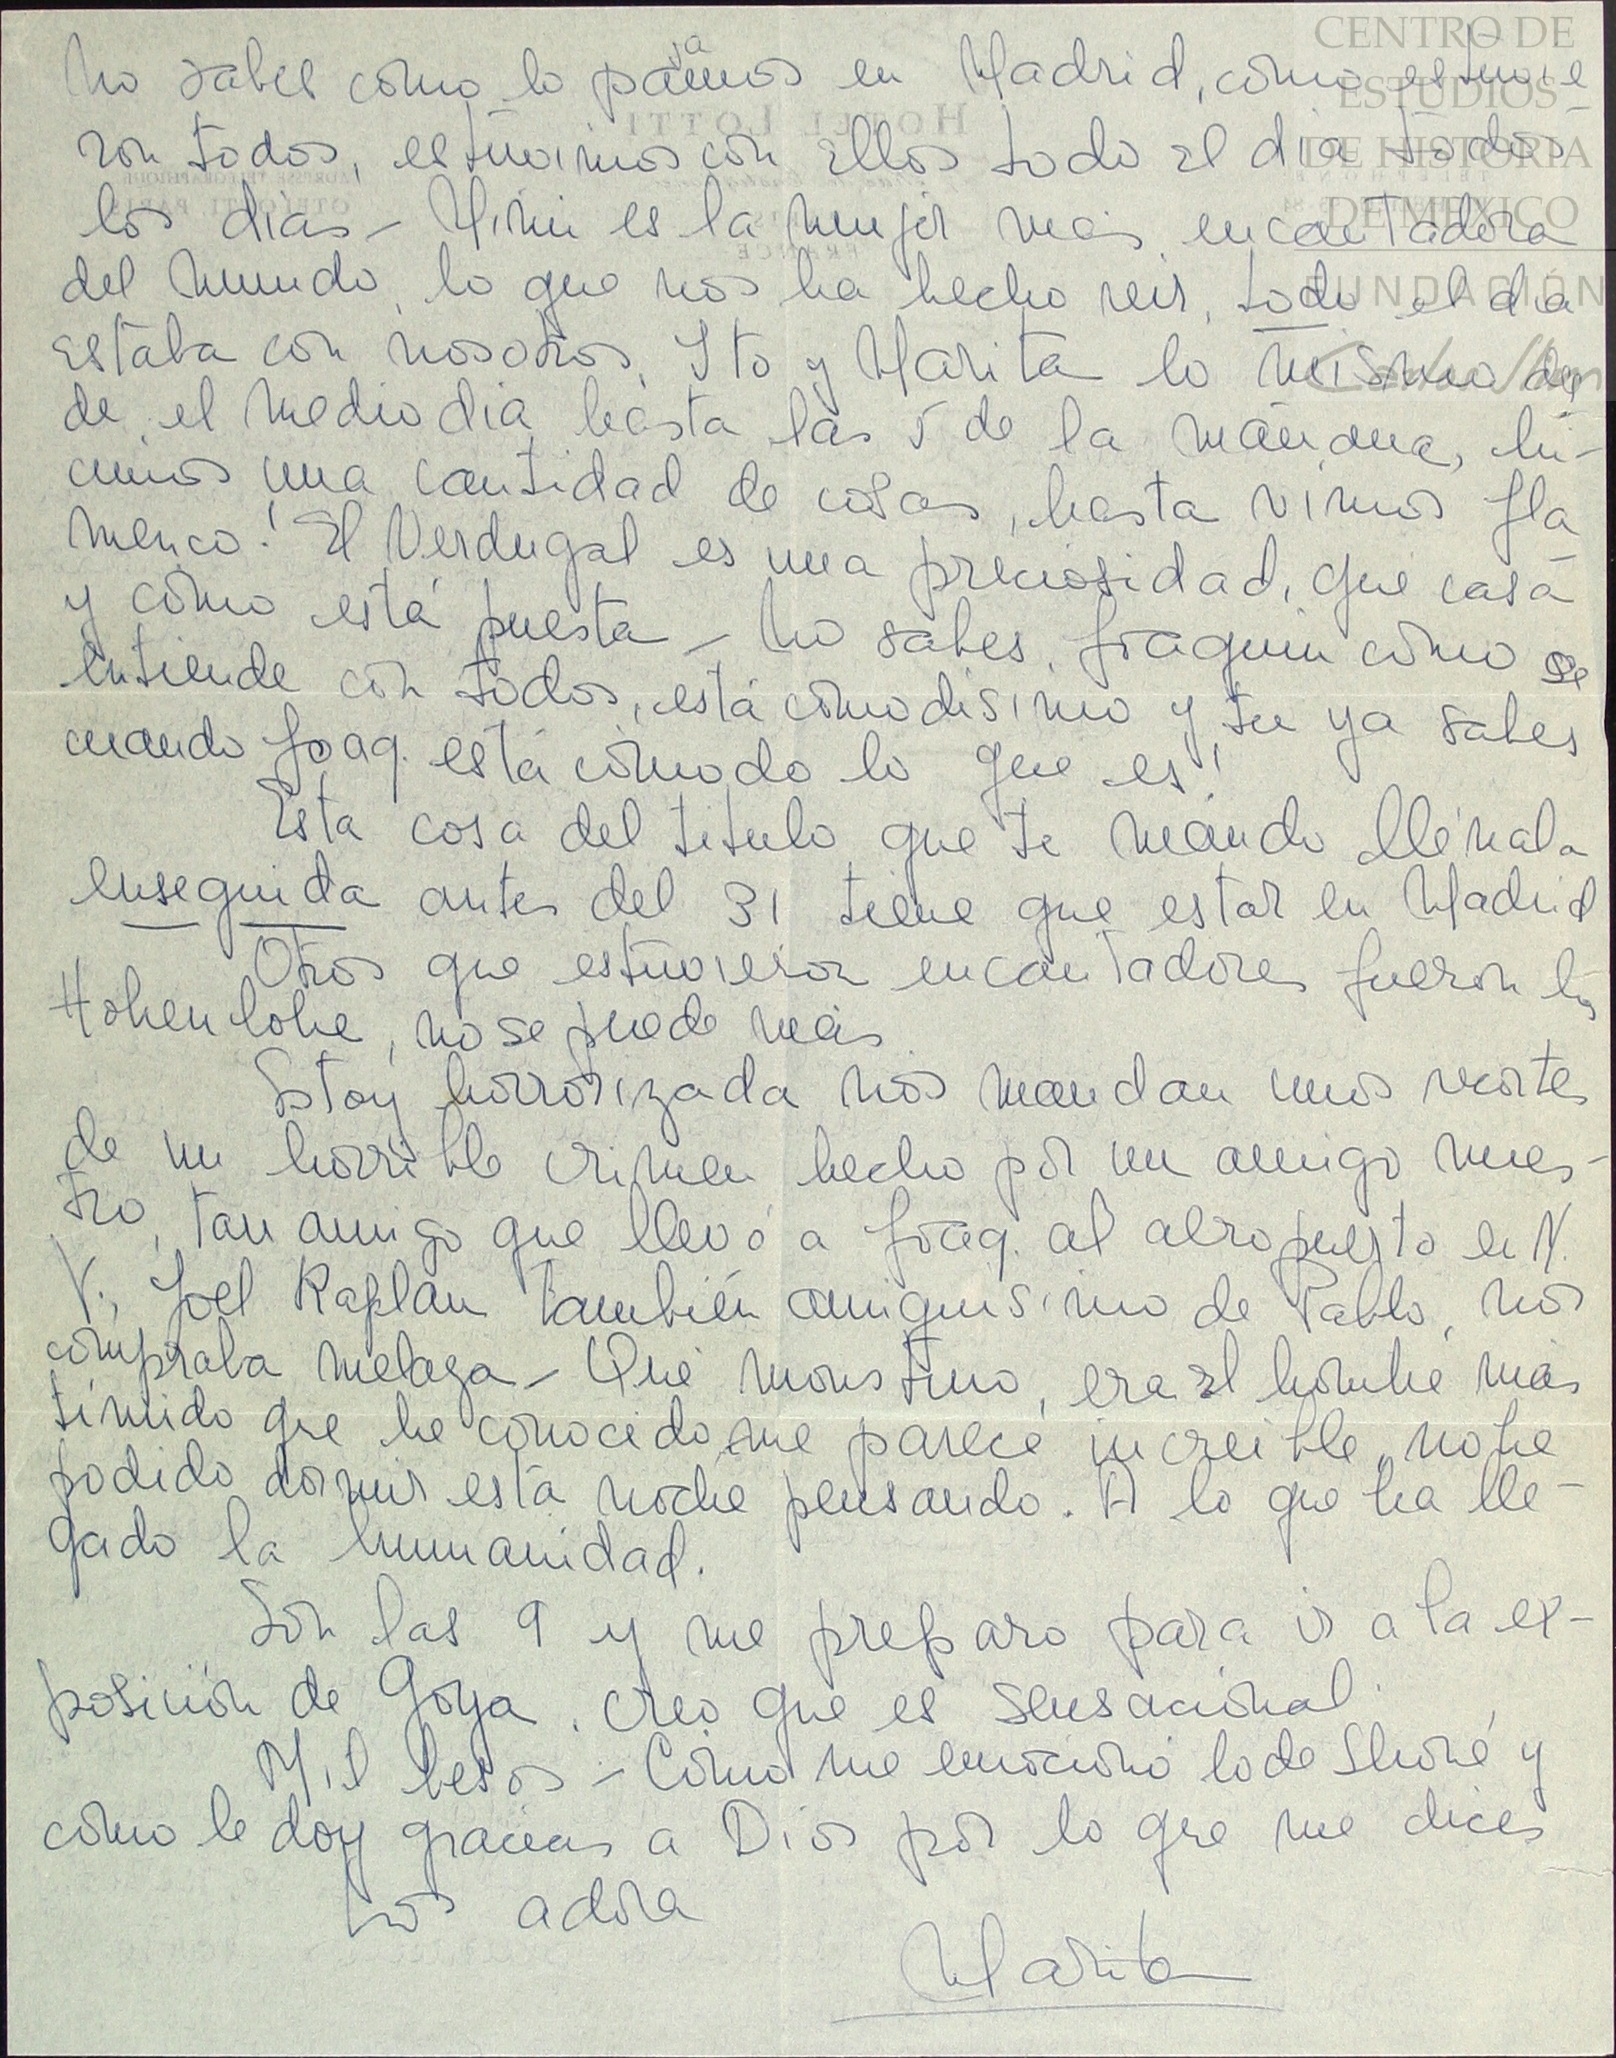 CENTRO DE
ESTUDIOS
DE HISTORIA
DE MÉXICO
FUNDACIÓN
HOTEL LOTTI
PARIS
FRANCE
No sabes como lo pasamos en Madrid, como estuvie
ron todos, estuvimos con Ellos todo el dia todos
los dias - Mimi es la mujer mas encantadora
del mundo, lo que nos ha hecho reir, todo el dia
estaba con nosotros, Ito y Marita lo mismo des
de el medio dia hasta las 5 de la mañana, hi-
cimos una cantidad de cosas, hasta vimos fla
menco! El Verdugal es una preciosidad, que casa
y como está puesta - No sabes, Joaquin como se
entiende con todos, está comodisimo y tu ya sabes
cuando Joaq. está comodo lo que es!
Esta cosa del titulo que te mando llénala
enseguida antes del 31 tiene que estar en Madrid
Otros que estuvieron encantadores fueron los
Hohenlohe, no se puede mas
Estoy horrorizada nos mandan unos recortes
de un horrible crimen hecho por un amigo nues-
tro, tan amigo que llevó a Joaq. al aeropuerto en N.
Y., Joel Kaplan también amiguisimo de Pablo, nos
compraba melaza - Qué monstruo, era el hombre mas
timido que he conocido, me parece increible, no he
podido dormir esta noche pensando. A lo que ha lle-
gado la humanidad.
Son las 9 y me preparo para ir a la ex-
posición de Goya. Creo que es sensacional.
Mil besos - Como me emocionó lo de Shoré y
como le doy gracias a Dios por lo que me dices
Los adora
Marita